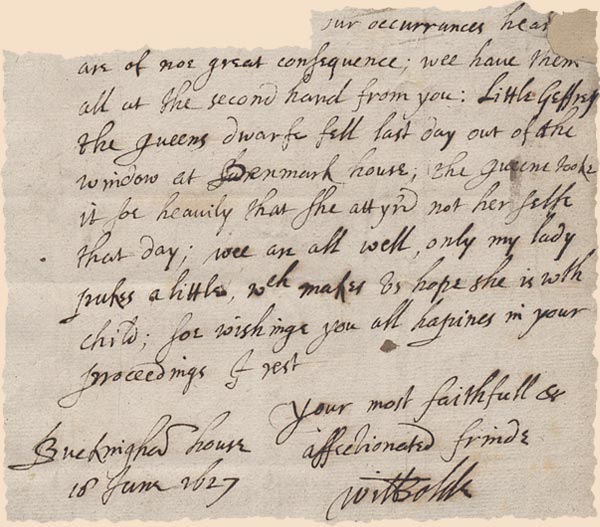 our occurrances hear
are of noe great consequence; wee have them
all at the second hand from you: Little Geffrey
the queens dwarfe fell last day out of the
window at Denmark house; the queene tooke
it soe heavily that she attyrd not her selfe
that day; wee are all well, only my lady
pukes a little, wch makes us hope she is wth
child; soe wishinge you all hapines in your
proceedings I rest
your most faithfull &
affectionated frinde
Buckingha house
18 June 1627